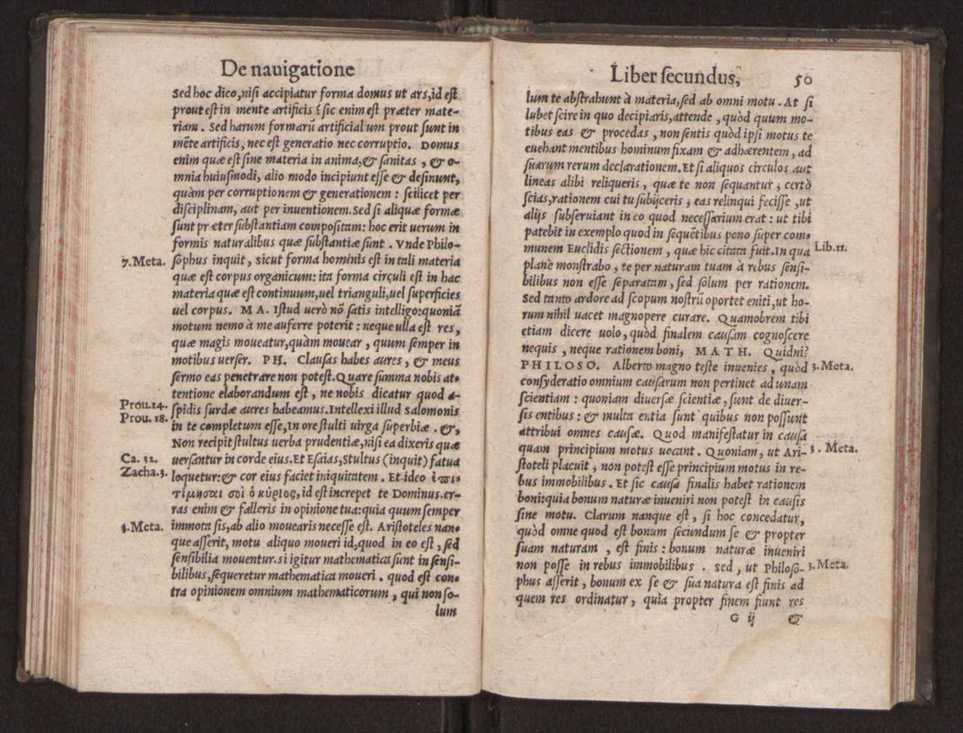 De nauigatione
Sed hoc dico, nisi accipiatur forma domus ut ars, id est
prout est in mente artificis: sic enim est præter mate-
riam. Sed harum formarũ artificialium prout sunt in
mẽte artificis, nec est generatio nec corruptio. Domus
enim quæ est sine materia in anima, & sanitas, & o-
mnia huiusmodi, alio modo incipiunt esse & desinunt,
quàm per corruptionem & generationem: scilicet per
disciplinam, aut per inuentionem. Sed si aliquæ formæ
sunt præter substantiam compositam: hoc erit uerum in
formis naturalibus quæ substantiæ sunt. Vnde Philo-
7. Meta. sophus inquit, sicut forma hominis est in tali materia
quæ est corpus organicum: ita forma circuli est in hac
materia quæ est continuum, uel trianguli, uel superficies
uel corpus. MA. Istud uerò nõ satis intelligo: quoniã
motum nemo à me auferre poterit: neque ulla est res,
quæ magis moueatur, quàm mouear, quum semper in
motibus uerser. PH. Clausas habes aures, & meus
sermo eas penetrare non potest. Quare summa nobis at-
tentione elaborandum est, ne nobis dicatur quod a-
Prou. 14. spidis surdæ aures habeamus. Intellexi illud Salomonis
Prou. 18. in te completum esse, In ore stulti uirga superbiæ. &,
Non recipit stultus uerba prudentiæ, nisi ea dixeris quæ
Ca. 32. uersantur in corde eius. Et Esaias, Stultus (inquit) fatua
Zacha. 3. loquetur: & cor eius faciet iniquitatem. Et ideo ἐπι-
τίμησαι σοὶ ὁ κύριος, id est increpet te Dominus. er-
ras enim & falleris in opinione tua: quia quum semper
4. Meta. immota sis, ab alio mouearis necesse est. Aristoteles nan-
que asserit, motu aliquo moueri id, quod in eo est, sed
sensibilia mouentur. si igitur mathematica sunt in sensi-
bilibus, sequeretur mathematica moueri. quod est con-
tra opinionem omnium mathematicorum, qui non so-
lum
Liber secundus, 50
lum te abstrahunt à materia, sed ab omni motu. At si
lubet scire in quo decipiaris, attende, quòd quum mo-
tibus eas & procedas, non sentis quòd ipsi motus te
euehant mentibus hominum fixam & adhærentem, ad
suarum rerum declarationem. Et si aliquos circulos aut
lineas alibi reliqueris, quæ te non sequantur, certò
scias, rationem cui tu subijceris, eas relinqui fecisse, ut
alijs subseruiant in eo quod necessarium erat: ut tibi
patebit in exemplo quod in sequẽtibus pono super com-
munem Euclidis sectionem, quæ hic citata fuit. In qua Lib. 11.
planè monstrabo, te per naturam tuam à rebus sensi-
bilibus non esse separatam, sed solum per rationem.
Sed tanto ardore ad scopum nostrũ oportet eniti, ut ho-
rum nihil uacet magnopere curare. Quamobrem tibi
etiam dicere uolo, quòd finalem causam cognoscere
nequis, neque rationem boni, MATH. Quidni?
PHILOSO. Alberto magno teste inuenies, quòd 3. Meta.
consyderatio omnium causarum non pertinet ad unam
scientiam: quoniam diuersæ scientiæ, sunt de diuer-
sis entibus: & multa entia sunt quibus non possunt
attribui omnes causæ. Quod manifestatur in causa
quam principium motus uocant. Quoniam, ut Ari- 3. Meta.
stoteli placuit, non potest esse principium motus in re-
bus immobilibus. Et sic causa finalis habet rationem
boni: quia bonum naturæ inueniri non potest in causis
sine motu. Clarum nanque est, si hoc concedatur,
quòd omne quod est bonum secundum se & propter
suam naturam, est finis: bonum naturæ inueniri
non posse in rebus immobilibus. Sed, ut Philoso- 3. Meta.
phus asserit, bonum ex se & sua natura est finis ad
quem res ordinatur, quia propter finem fiunt res
G ij &